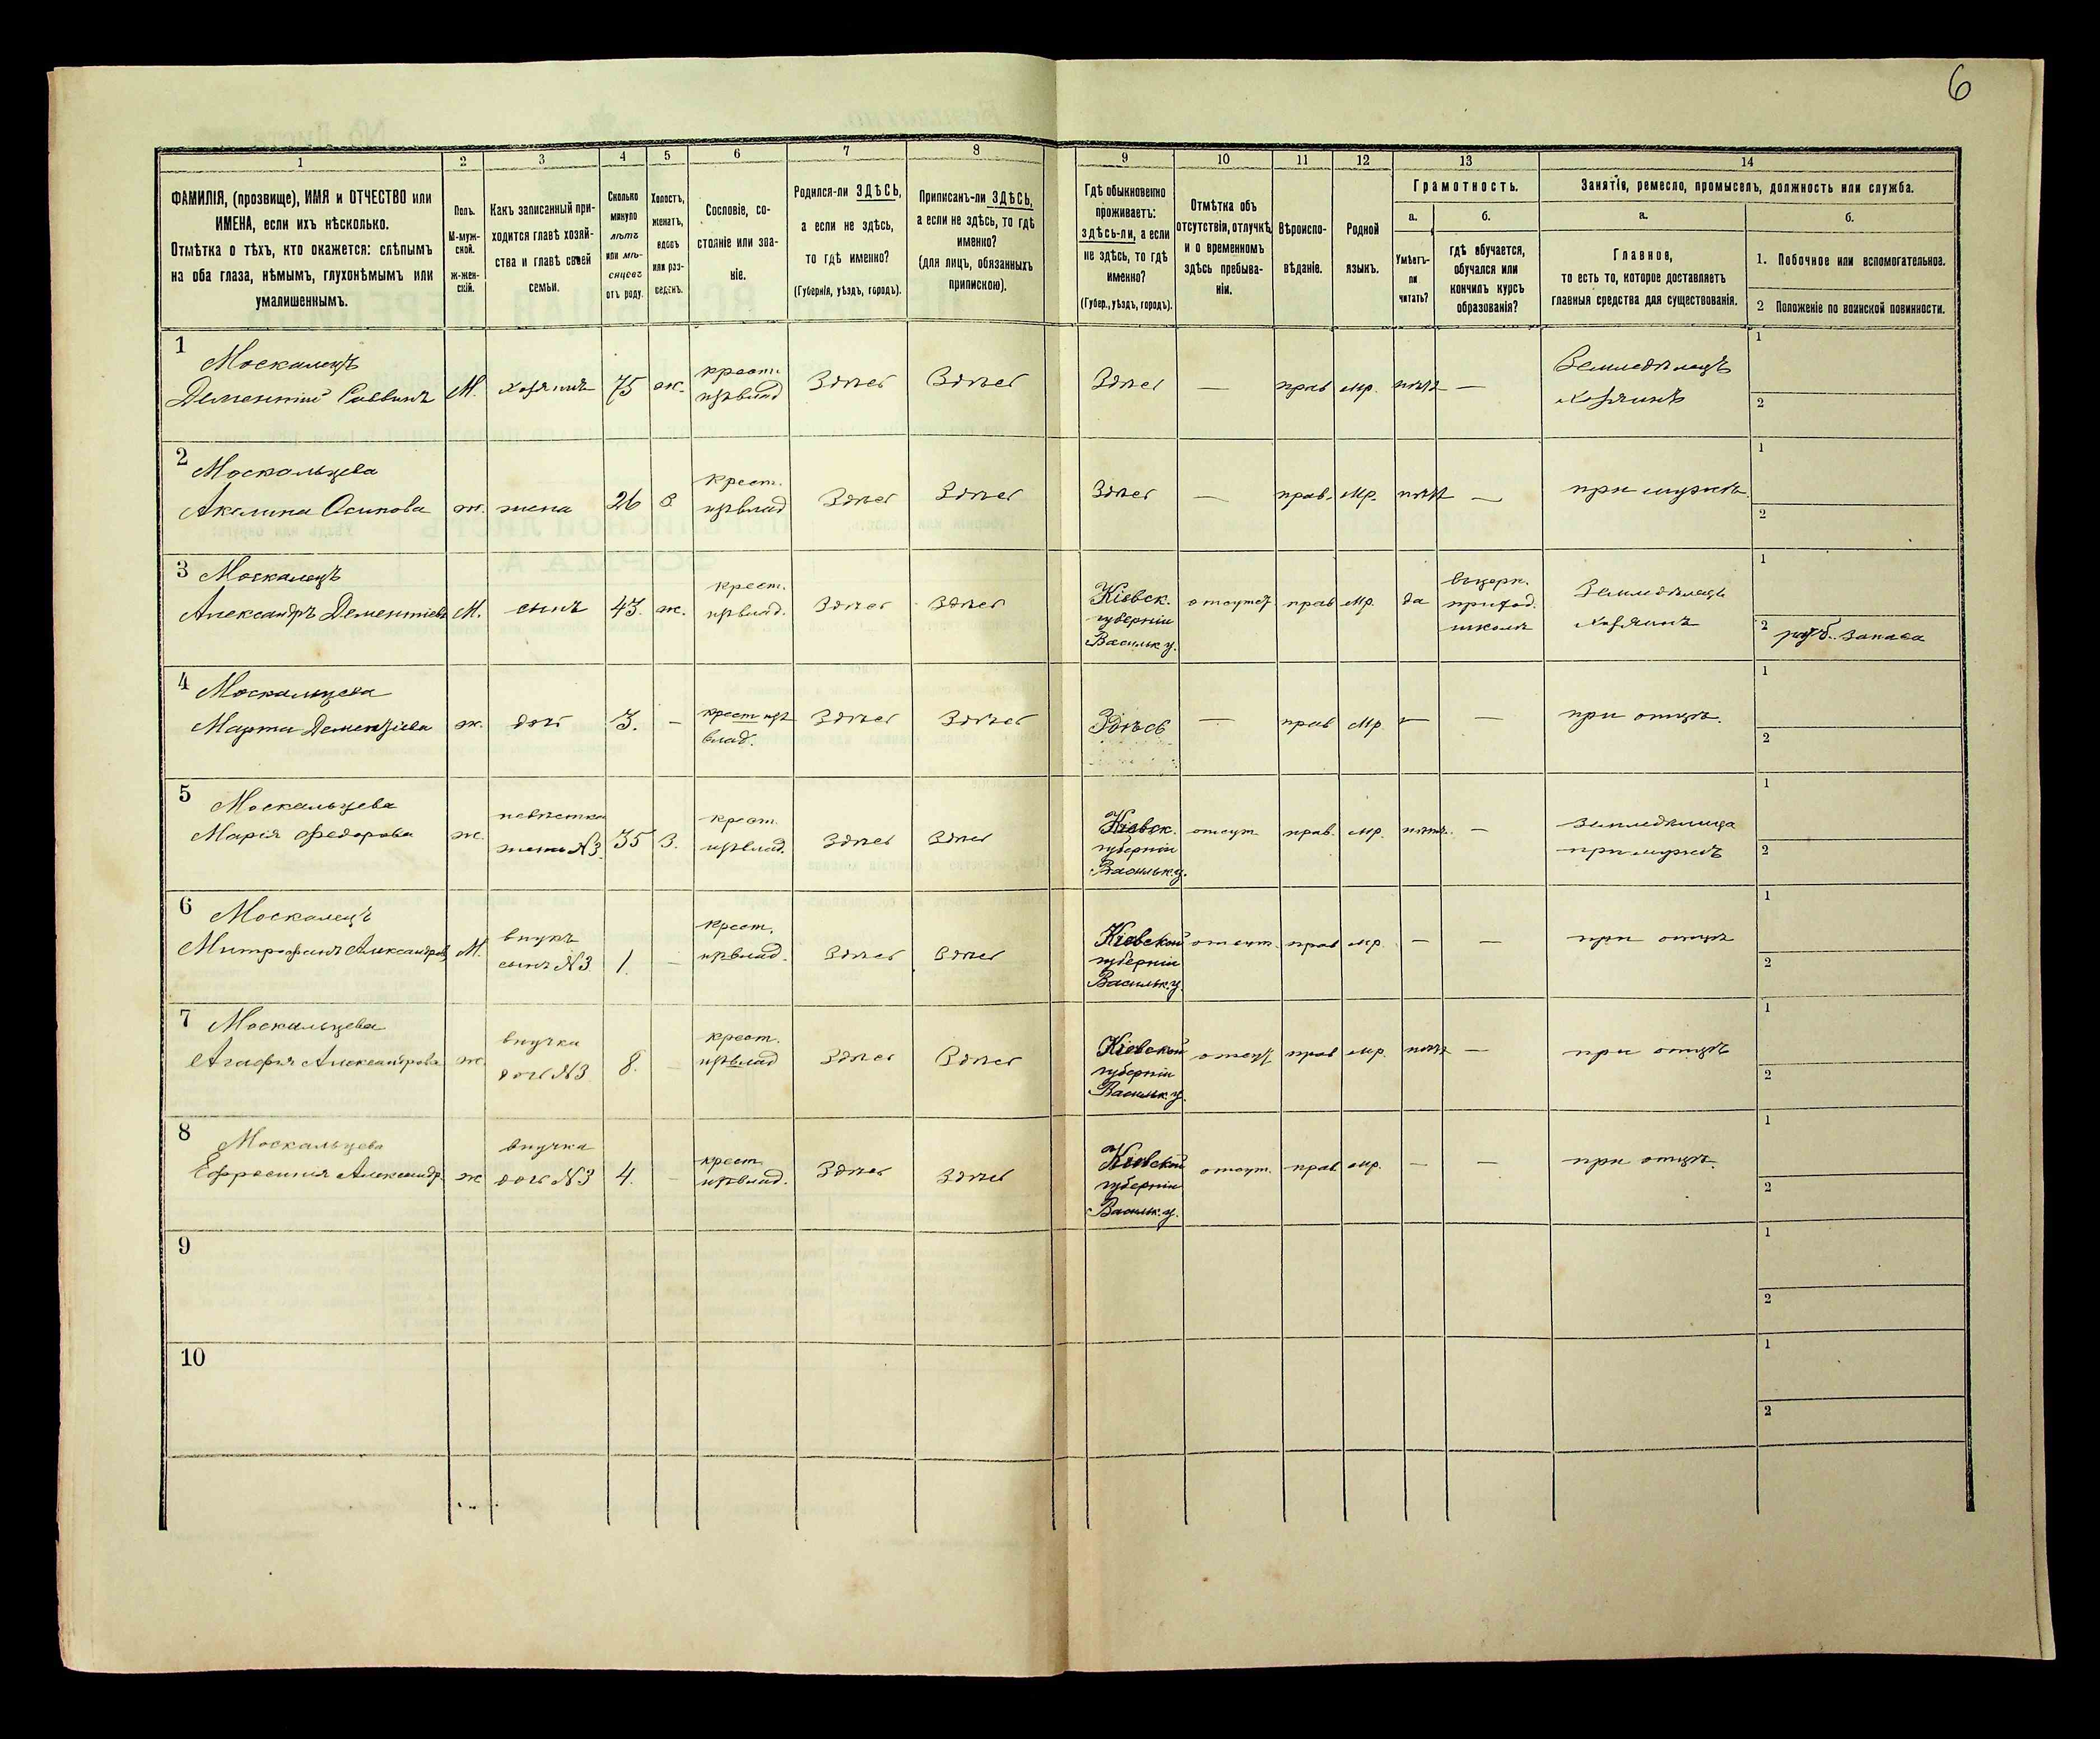 6
1 2 3 4 5 6 7 8 9 10 11 12 13 14
ФАМИЛІЯ, (прозвище), ИМЯ и ОТЧЕСТВО или
ИМЕНА, если ихъ нѣсколько.
Отмѣтка о тѣхъ, кто окажется: слѣпымъ
на оба глаза, нѣмымъ, глухонѣмымъ или
умалишеннымъ.
Полъ.
М-муж-
ской.
ж-жен-
скій.
Какъ записанный при-
ходится главѣ хозяй-
ства и главѣ своей
семьи.
Сколько
минуло
лѣтъ
или мѣ-
сяцевъ
отъ роду.
Холостъ,
женатъ,
вдовъ
или раз-
веденъ.
Сословіе, со-
стояніе или зва-
ніе.
Родился-ли ЗДѢСЬ,
а если не здѣсь,
то гдѣ именно?
(Губернія, уѣздъ, городъ).
Приписанъ-ли ЗДѢСЬ,
а если не здѣсь, то гдѣ
именно?
(для лицъ, обязанныхъ
припискою).
Гдѣ обыкновенно
проживаетъ:
здѣсь-ли, а если
не здѣсь, то гдѣ
именно?
(Губер., уѣздъ, городъ).
Отмѣтка объ
отсутствіи, отлучкѣ,
и о временномъ
здѣсь пребыва-
ніи.
Вѣроиспо-
вѣданіе.
Родной
языкъ.
Грамотность.
а.
Умѣетъ-
ли
читать?
б.
гдѣ обучается,
обучался или
кончилъ курсъ
образованія?
Занятіе, ремесло, промыселъ, должность или служба.
а.
Главное,
то есть то, которое доставляетъ
главныя средства для существованія.
б.
1. Побочное или вспомогательное.
2 Положеніе по воинской повинности.
1 Москалецъ
Дементій Саввинъ М. хозяинъ 75 ж. крест. Здѣсь Здѣсь Здѣсь — прав мр. нѣтъ — Земледѣлецъ
хозяинъ
1
2
2 Москальцева
Акилина Осипова ж. жена 26 З крест. Здѣсь Здѣсь Здѣсь — прав. мр. нѣтъ — при мужѣ.
1
2
3 Москалецъ
Александръ Дементіевъ М. сынъ 43. ж. крест. Здѣсь Здѣсь Кіевск.
губерніи
Васильк у. отсутст прав мр. да вцерк.
приход.
школѣ Земледѣлецъ
хозяинъ
1
2 запаса
4 Москальцева
Марта Дементіева ж. дочь 3. — крест
влад. Здѣсь Здѣсь Здѣсь — прав мр — — при отцѣ.
1
2
5 Москальцева
Марія Федорова ж. невѣстка
жена №3. 35 З. крест. Здѣсь Здѣсь Кіевск.
губерніи
Васильк.у. отсут. прав. мр. нѣтъ. — земледѣлица
при мужѣ
1
2
6 Москалецъ
Митрофанъ Александров М. внукъ
сынъ №3 1. — крест. Здѣсь Здѣсь Кіевской
губерніи
Васильк.у. отсут. прав мр. — — при отцѣ
1
2
7 Москальцева
Агафья Александрова ж. внучка
дочь №3 8. — крест. Здѣсь Здѣсь Кіевской
губерніи
Васильк.у. отсут прав мр. нѣтъ — при отцѣ
1
2
8 Москальцева
Ефросинія Александр. ж внучка
дочь №3 4. — крест Здѣсь Здѣсь Кіевской
губерніи
Васильк.у. отсут. прав. мр. — — при отцѣ.
1
2
9
1
2
10
1
2